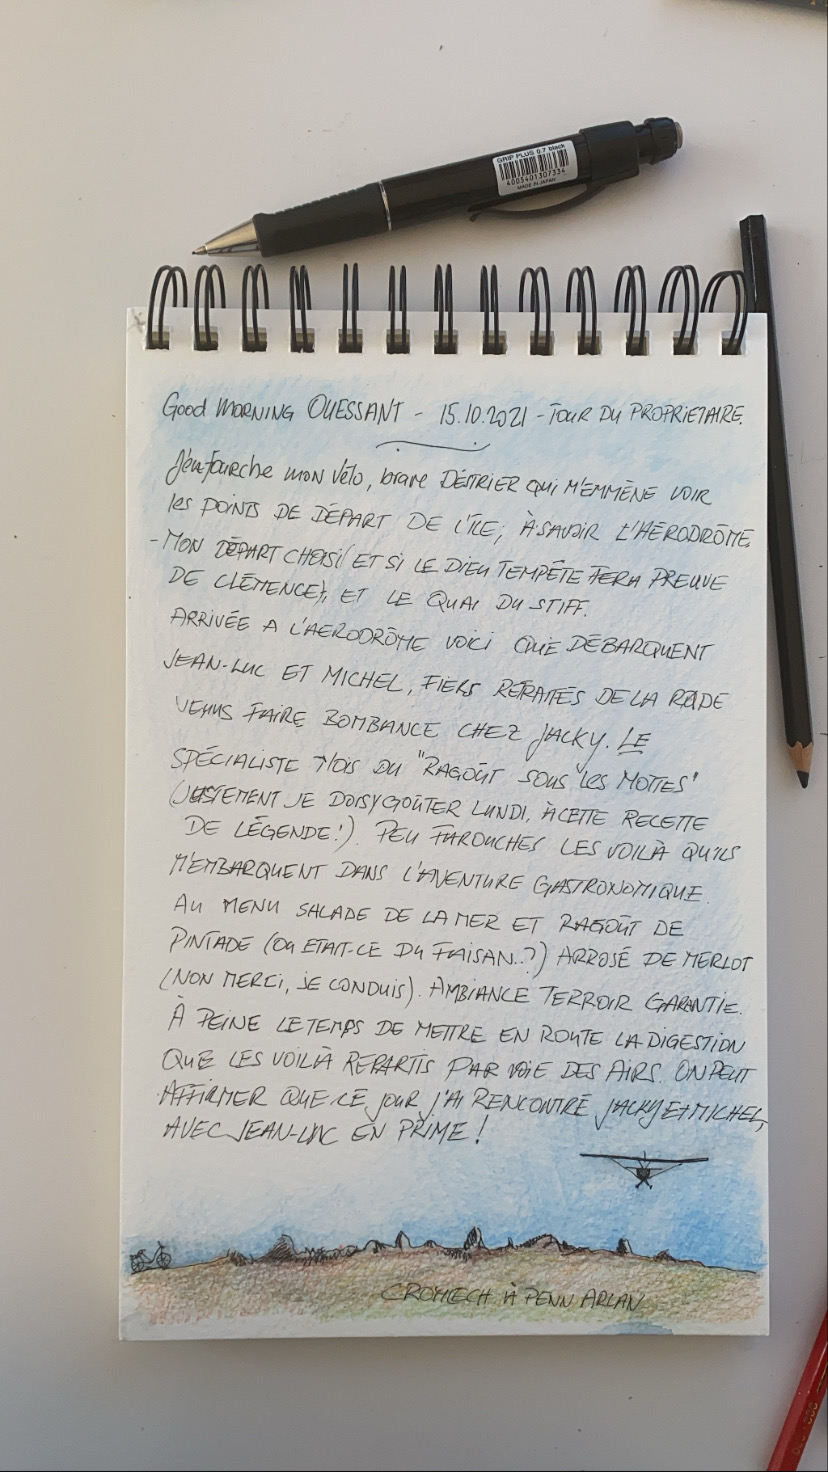 GRIP PLUS 0.7 black
4005401307334
MADE IN JAPAN
Good MORNING OUESSANT - 15.10.2021 - TOUR DU PROPRIETAIRE.
J'enfourche mon vélo, brave DESTRIER QUI M'EMMÈNE VOIR
les POINTS DE DÉPART DE L'ÎLE, À SAVOIR L'AÉRODRÔME
- MON DÉPART CHOISI (ET SI LE DIEU TEMPÊTE FERA PREUVE
DE CLÉMENCE), ET LE QUAI DU STIFF.
ARRIVÉE A L'AERODRÔME VOICI QUE DÉBARQUENT
JEAN-LUC ET MICHEL, FIERS RETRAITÉS DE LA RADE
VENUS FAIRE BOMBANCE CHEZ JACKY. LE
SPÉCIALISTE ILOIS DU "RAGOÛT SOUS LES MOTTES"
(JUSTEMENT JE DOIS Y GOÛTER LUNDI, À CETTE RECETTE
DE LÉGENDE!). PEU FAROUCHES LES VOILÀ QU'ILS
M'EMBARQUENT DANS L'AVENTURE GASTRONOMIQUE.
AU MENU SALADE DE LA MER ET RAGOÛT DE
PINTADE (OU ETAIT-CE DU FAISAN..?) ARROSÉ DE MERLOT
(NON MERCI, JE CONDUIS). AMBIANCE TERROIR GARANTIE.
À PEINE LE TEMPS DE METTRE EN ROUTE LA DIGESTION
QUE LES VOILÀ REPARTIS PAR VOIE DES AIRS. ON PEUT
AFFIRMER QUE CE JOUR J'AI RENCONTRÉ JACKY ET MICHEL,
AVEC JEAN-LUC EN PRIME !
CROMLECH À PENN ARLAN